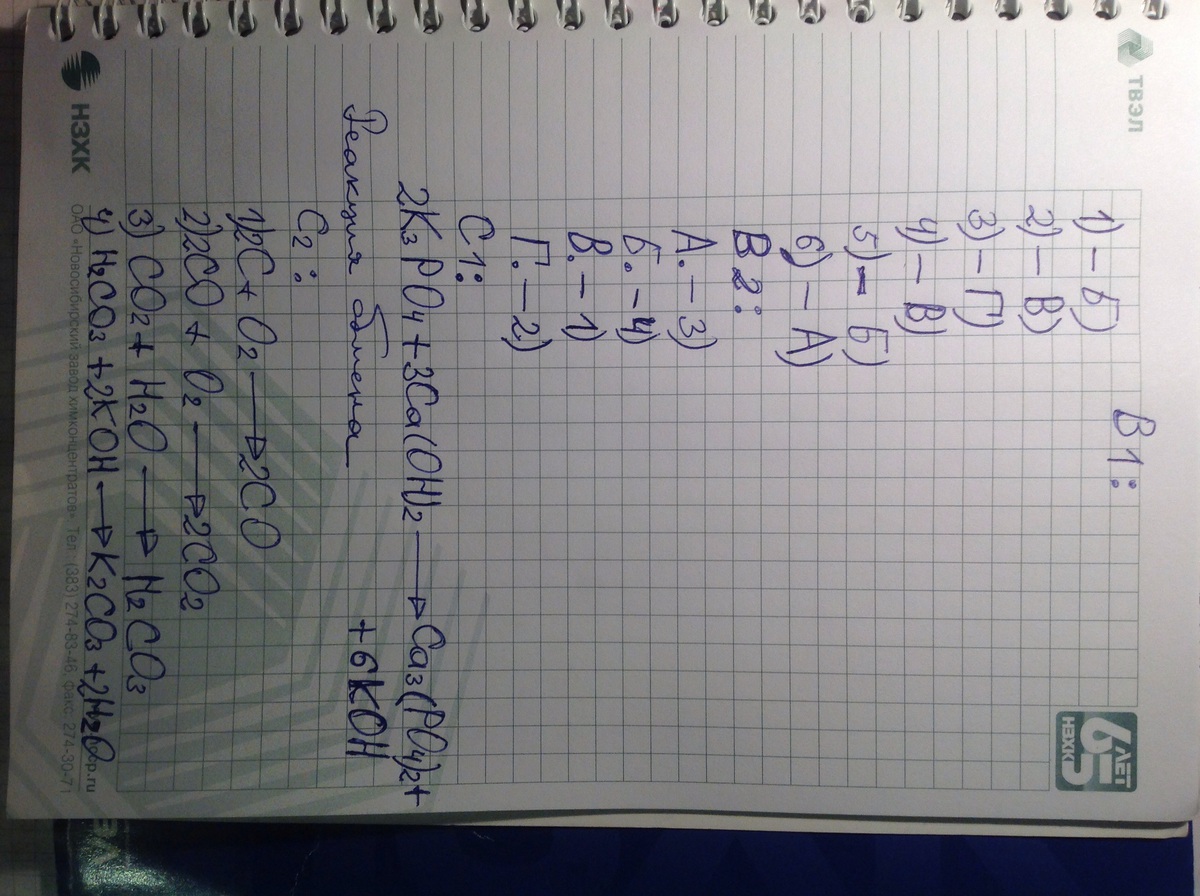 ТВЭЛ
65 ЛЕТ
НЗХК
В1:
1) – Б)
2) – В)
3) – Г)
4) – В)
5) – Б)
6) – А)
В2:
А. – 3)
Б. – 4)
В. – 1)
Г. – 2)
С1:
2K3PO4 + 3Ca(OH)2 → Ca3(PO4)2 +
+ 6KOH
Реакция обмена
С2:
1) 2C + O2 → 2CO
2) 2CO + O2 → 2CO2
3) CO2 + H2O → H2CO3
4) H2CO3 + 2KOH → K2CO3 + 2H2O
НЗХК
ОАО «Новосибирский завод химконцентратов». Тел.: (383) 274-83-46, факс: 274-30-71
cp.ru